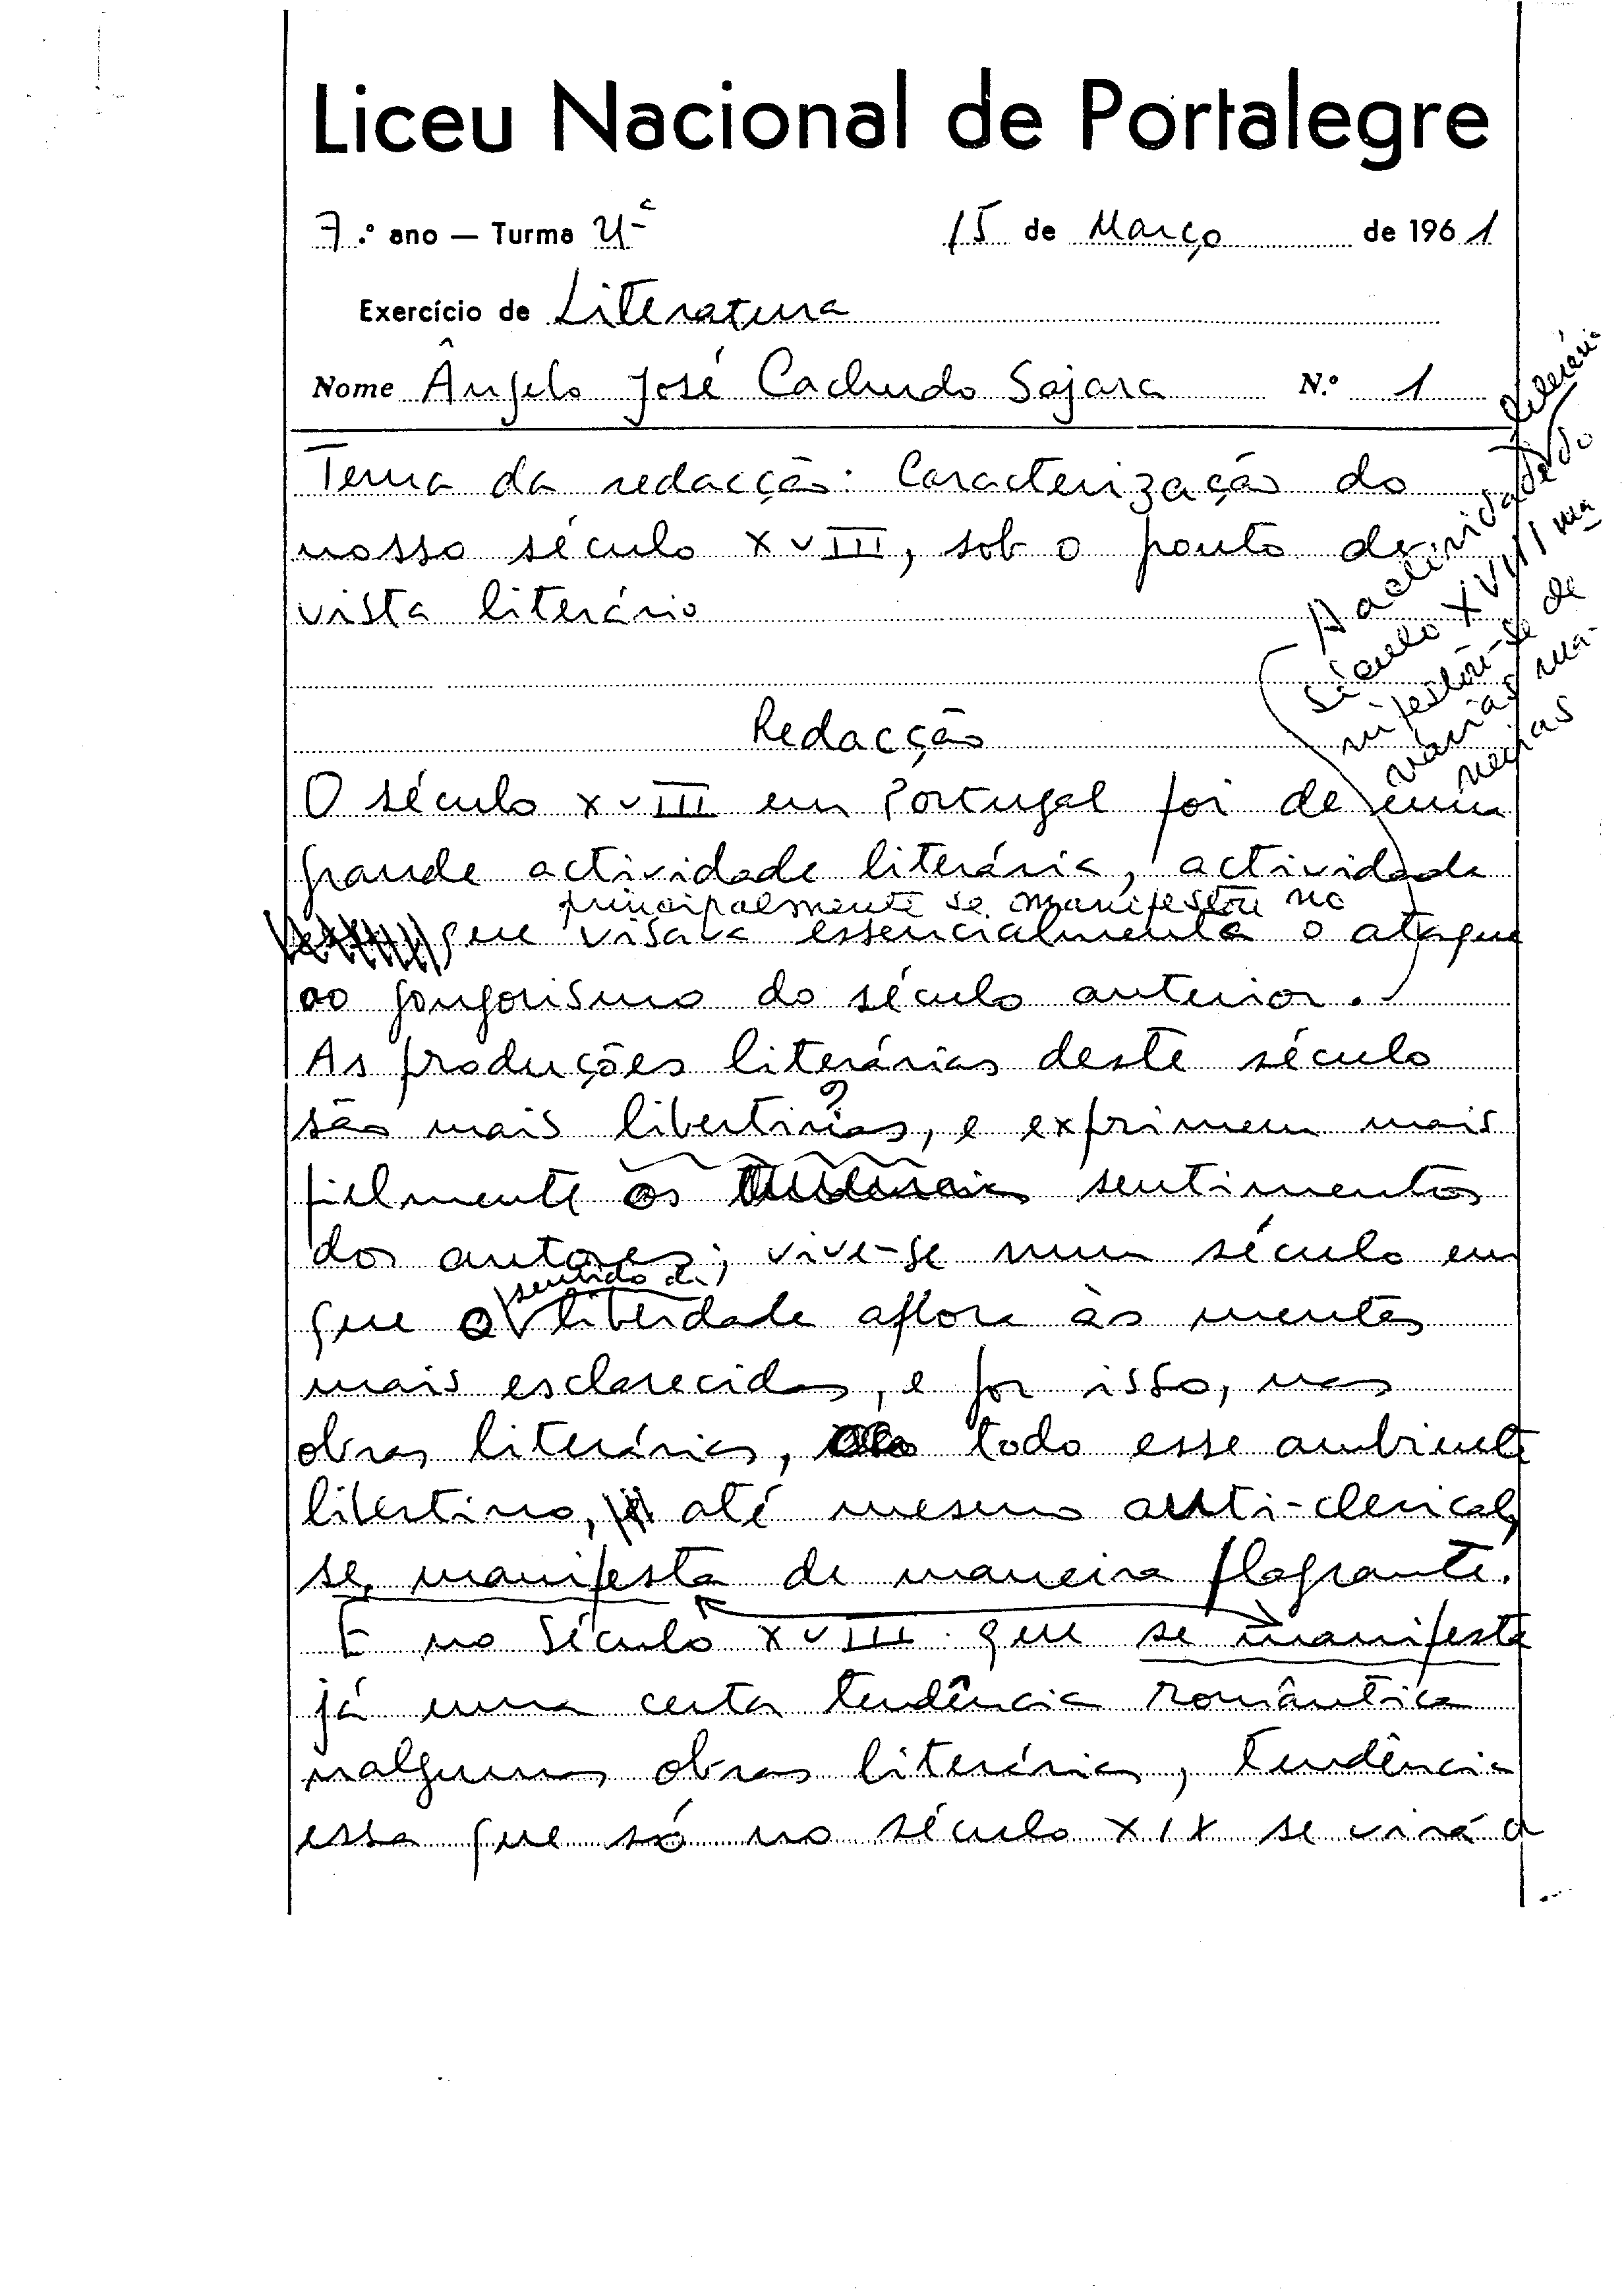 Liceu Nacional de Portalegre
7.º ano — Turma
15 de Março de 1961
Exercício de Literatura
Nome Ângelo José Cachudo Sajara N.º 1
Tema da redacção: Caracterização do
nosso século XVIII, sob o ponto de
vista literário
A actividade literária
do século XVIII ma-
nifestou-se de
várias ma-
neiras
Redacção
O século XVIII em Portugal foi de uma
grande actividade literária, actividade
principalmente se manifestou no
que visava essencialmente o ataque
ao gongorismo do século anterior.
As produções literárias deste século
?
são mais libertinas, e exprimem mais
fielmente os sentimentos
dos autores; vive-se num século em
sentido de
que a liberdade aflora às mentes
mais esclarecidas, e por isso, nas
obras literárias, todo esse ambiente
libertino, até mesmo anti-clerical,
se manifesta de maneira flagrante.
É no século XVIII que se manifesta
já uma certa tendência romântica
nalgumas obras literárias, tendência
essa que só no século XIX se virá a